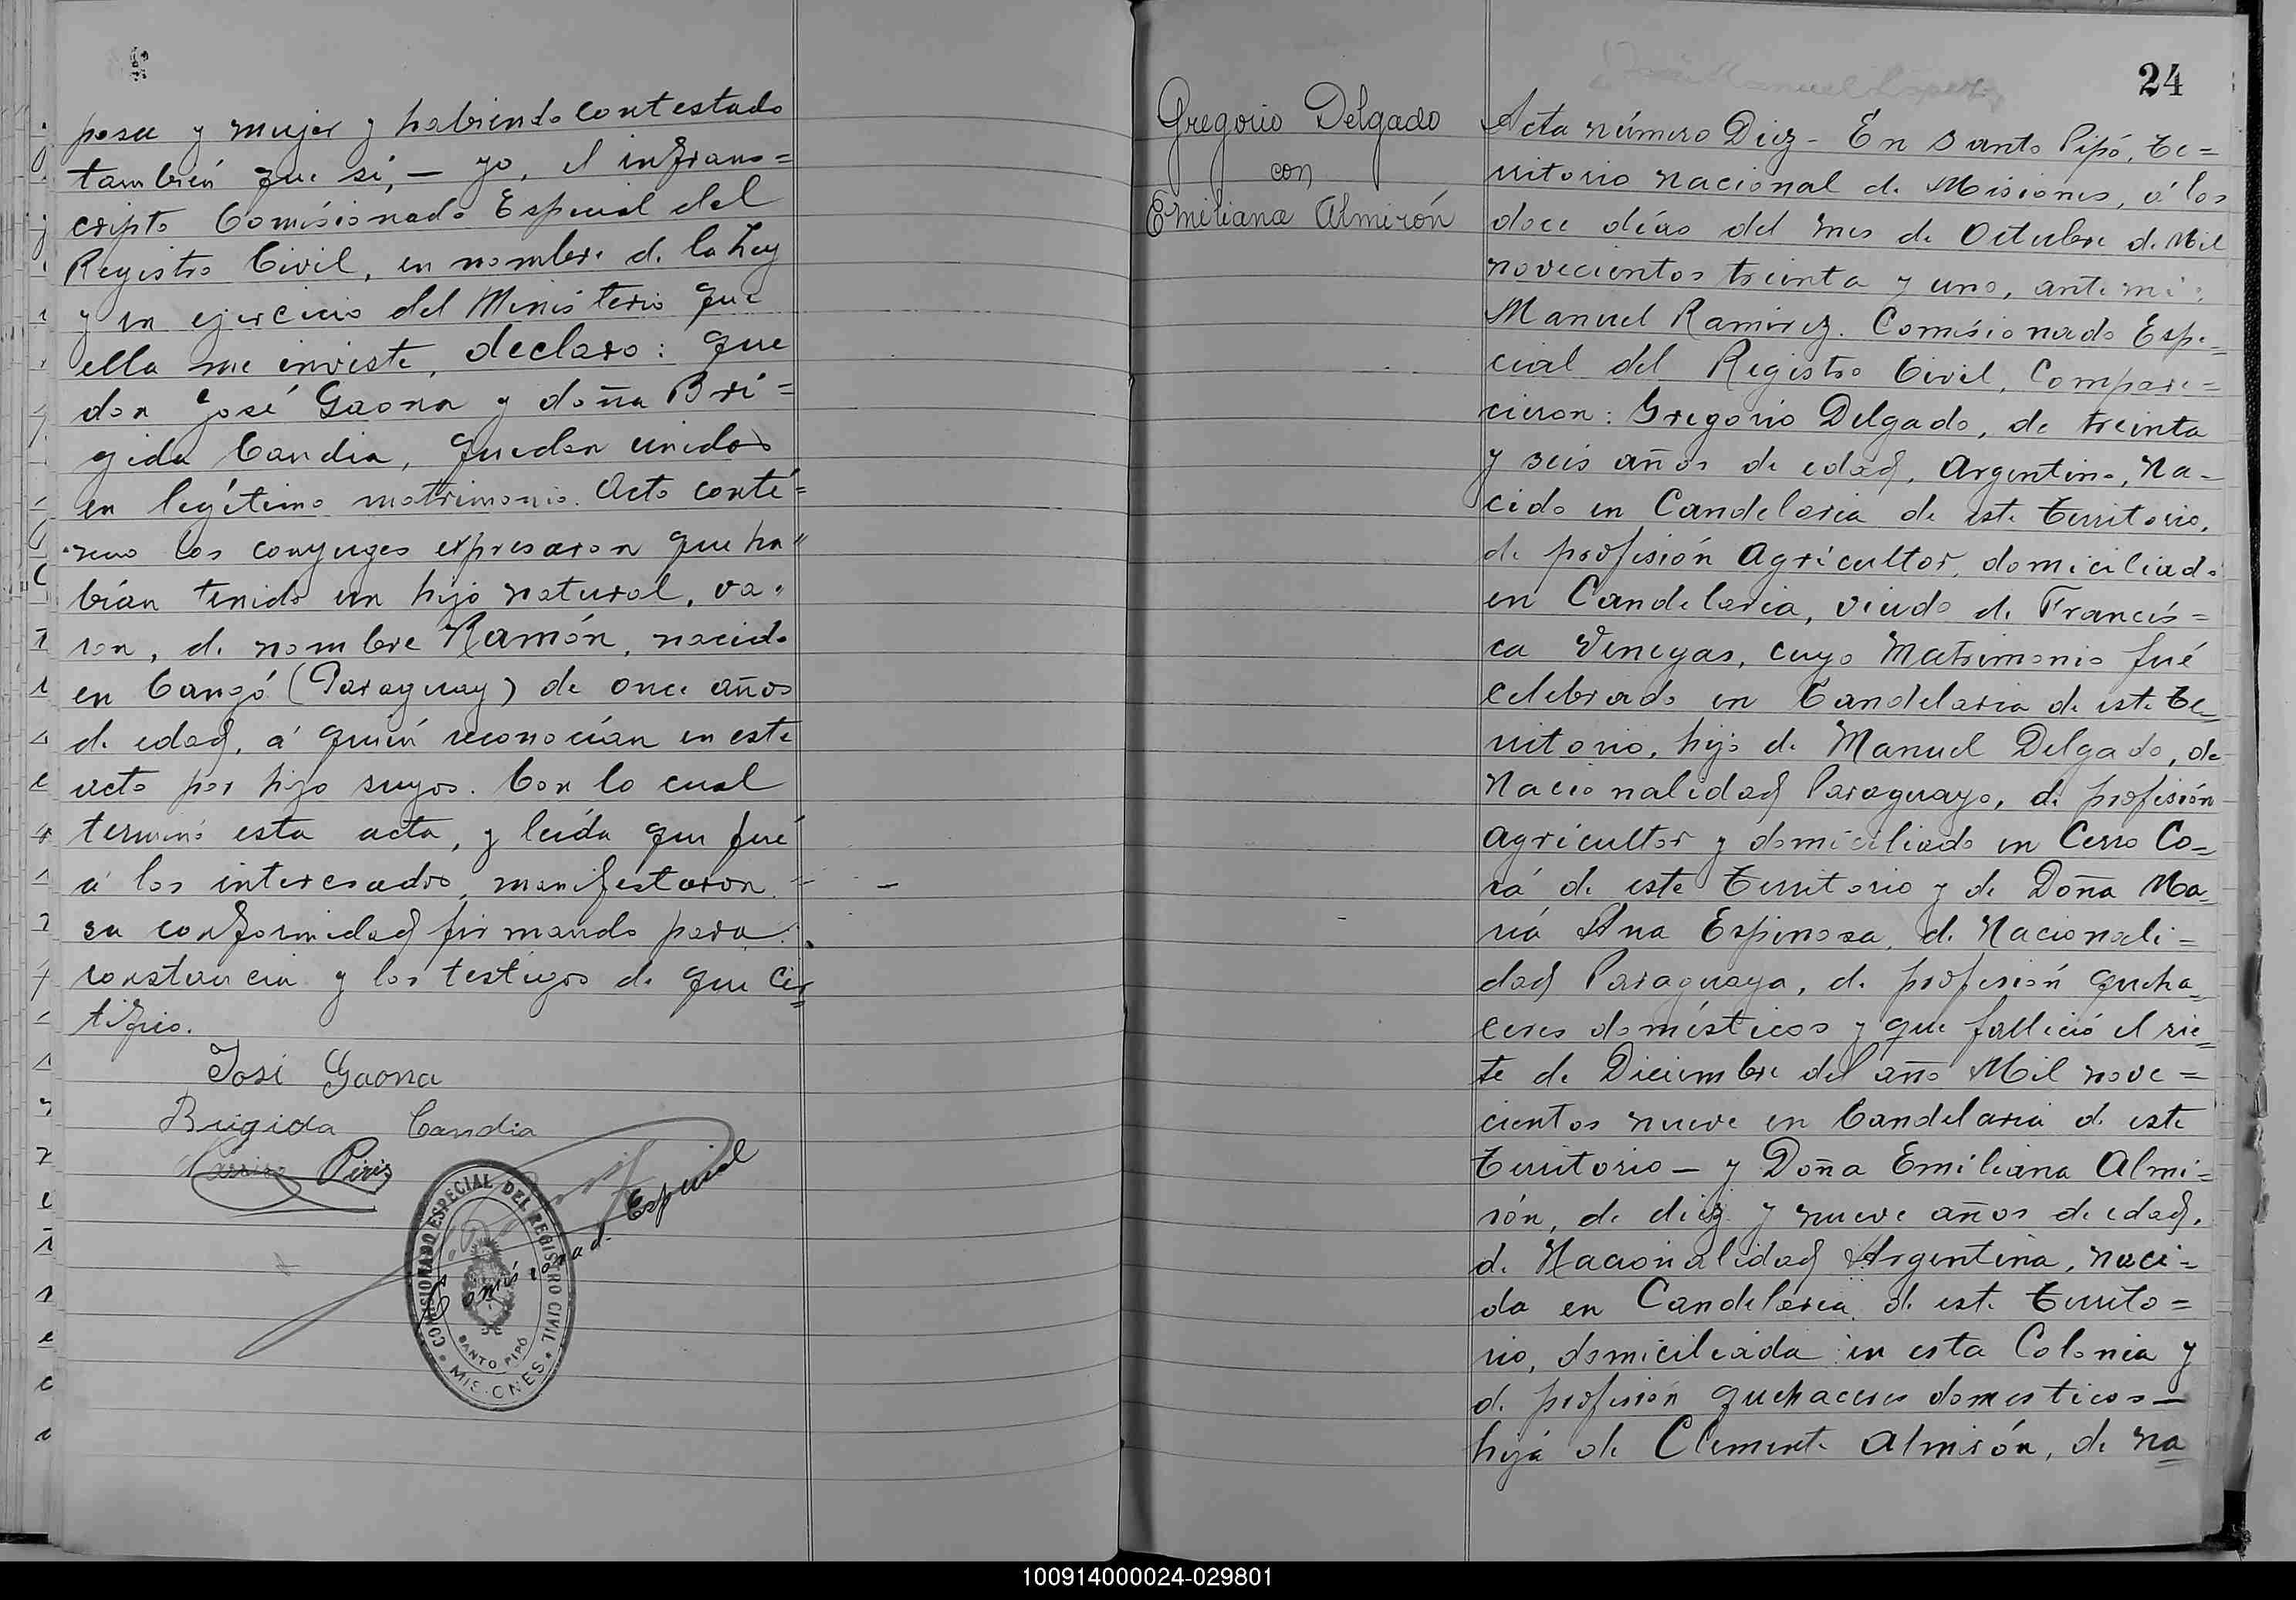 posa y mujer y habiendo contestado
también que sí, — yo, el infrans=
cripto Comisionado Especial del
Registro Civil, en nombre de la Ley
y en ejercicio del Ministerio que
ella me inviste, declaro: que
don José Gaona y doña Bri=
gida Candia, quedan unidos
en legítimo matrimonio. Acto conti=
nuo los conyuges expresaron que ha=
bían tenido un hijo natural, va=
ron, de nombre Ramón, nacido
en Cangó (Paraguay) de once años
de edad, á quien reconocían en este
acto por hijo suyos. Con lo cual
terminó esta acta, y leída que fué
á los interesados, manifestaron
su conformidad firmando para
constancia y los testigos de que Cer=
tifico.
José Gaona
Brigida Candia
Piriz
Comisionado Especial
COMISIONADO ESPECIAL DEL REGISTRO CIVIL
SANTO PIPÓ
MISIONES
24
Gregorio Delgado
con
Emiliana Almirón
Acta número Diez - En Santo Pipó, Te=
rritorio nacional de Misiones, á los
doce días del mes de Octubre de Mil
novecientos treinta y uno, ante mi:
Manuel Ramirez. Comisionado Espe=
cial del Registro Civil, Compare=
cieron: Gregorio Delgado, de treinta
y seis años de edad, Argentino, na-
cido en Candelaria de este Territorio,
de profesión Agricultor, domiciliado
en Candelaria, viudo de Francis=
ca Venegas, cuyo Matrimonio fué
celebrado en Candelaria de este Te=
rritorio, hijo de Manuel Delgado, de
Nacionalidad Paraguayo, de profesión
agricultor y domiciliado en Cerro Co=
rá de este Territorio y de Doña Ma=
ría Ana Espinosa, de Nacionali=
dad Paraguaya, de profesión queha=
ceres domésticos y que falleció el sie=
te de Diciembre del año Mil nove=
cientos nueve en Candelaria de este
Territorio — y Doña Emiliana Almi=
rón, de diez y nueve años de edad,
de Nacionalidad Argentina, naci=
da en Candelaria de este Territo=
rio, domiciliada en esta Colonia y
de profesión quehaceres domesticos —
hija de Clemente Almirón, de na
100914000024-029801